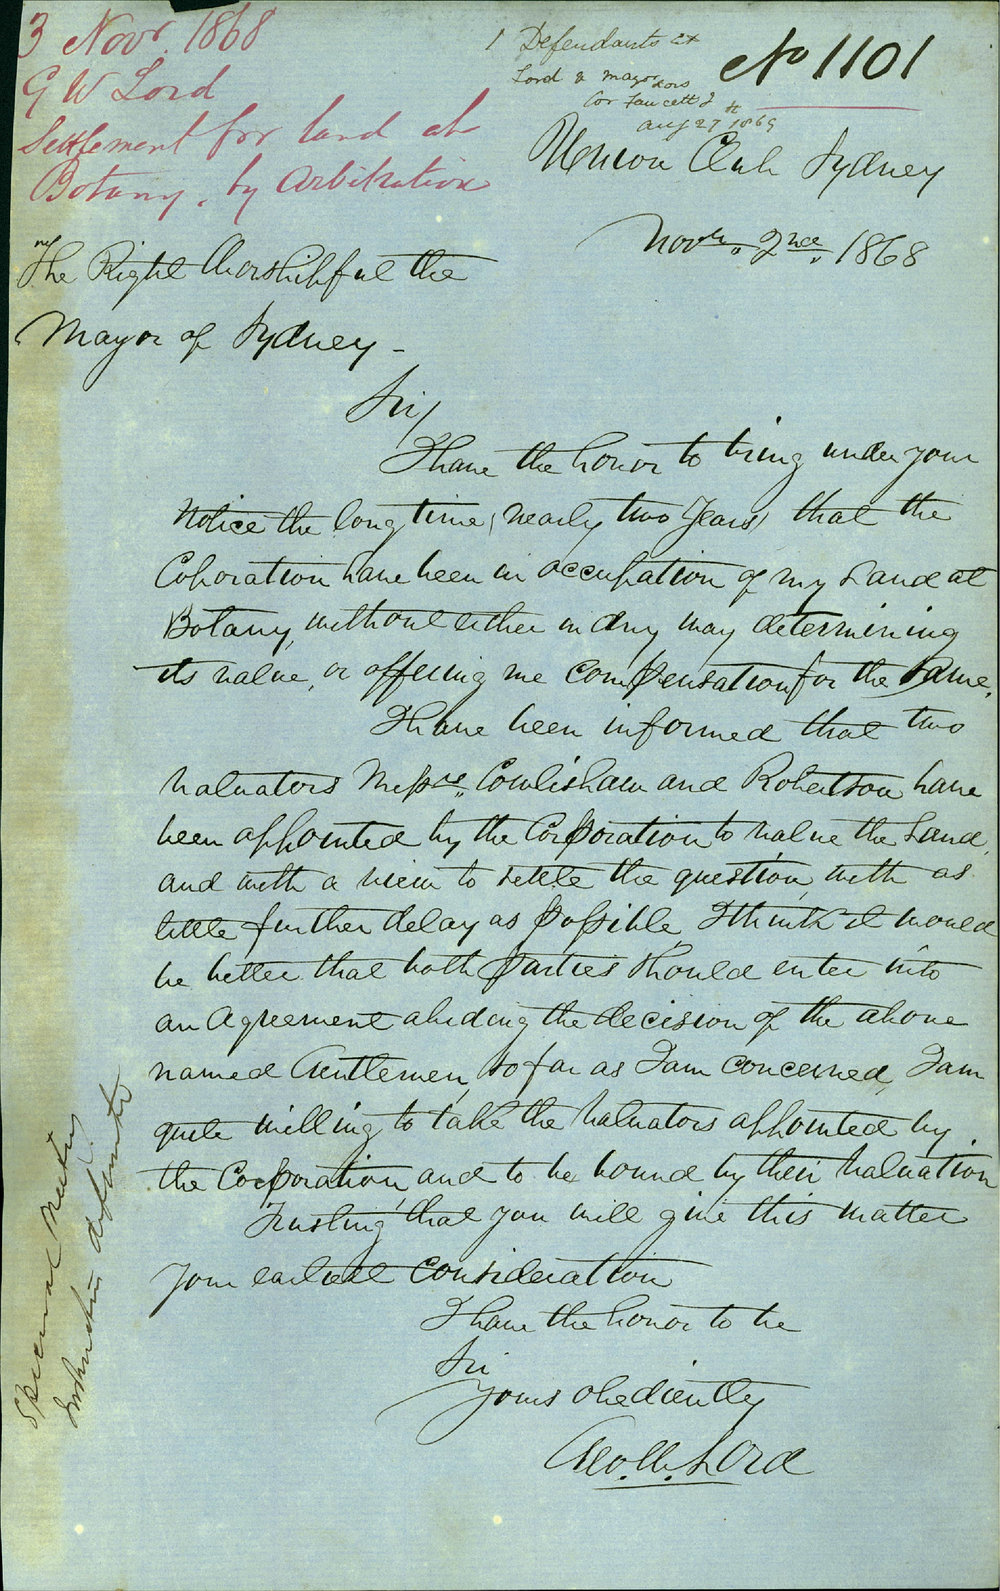 3 Novr. 1868
G W Lord
Settlement for land at
Botany, by Arbitration
1 Defendants Ex
Lord v Mayor
Cor Faucett J
Aug 27th 1869
No 1101
Union Club Sydney
Novr. 2nd. 1868
The Right Worshipful the
Mayor of Sydney -
Sir/
I have the honor to bring under your
Notice the long time, (nearly two Years) that the
Coporation have been in occupation of my Land at
Botany, without either in any way determining
its value, or offering me compensation for the same.
I have been informed that two
Valuators Messrs. Cowlishaw and Robertson have
been appointed by the Corporation to value the Land,
and with a view to settle the question, with as
little further delay as possible, I think it would
be better that both parties should enter into
an Agreement abiding the decision of the above
named Gentlemen, so far as I am concerned, I am
quite willing to take the Valuators appointed by
the Corporation, and to be bound by their Valuation
Trusting that you will give this matter
your earliest consideration
I have the honor to be
Sir
Yours obediently
Geo. W. Lord
Special Meeting